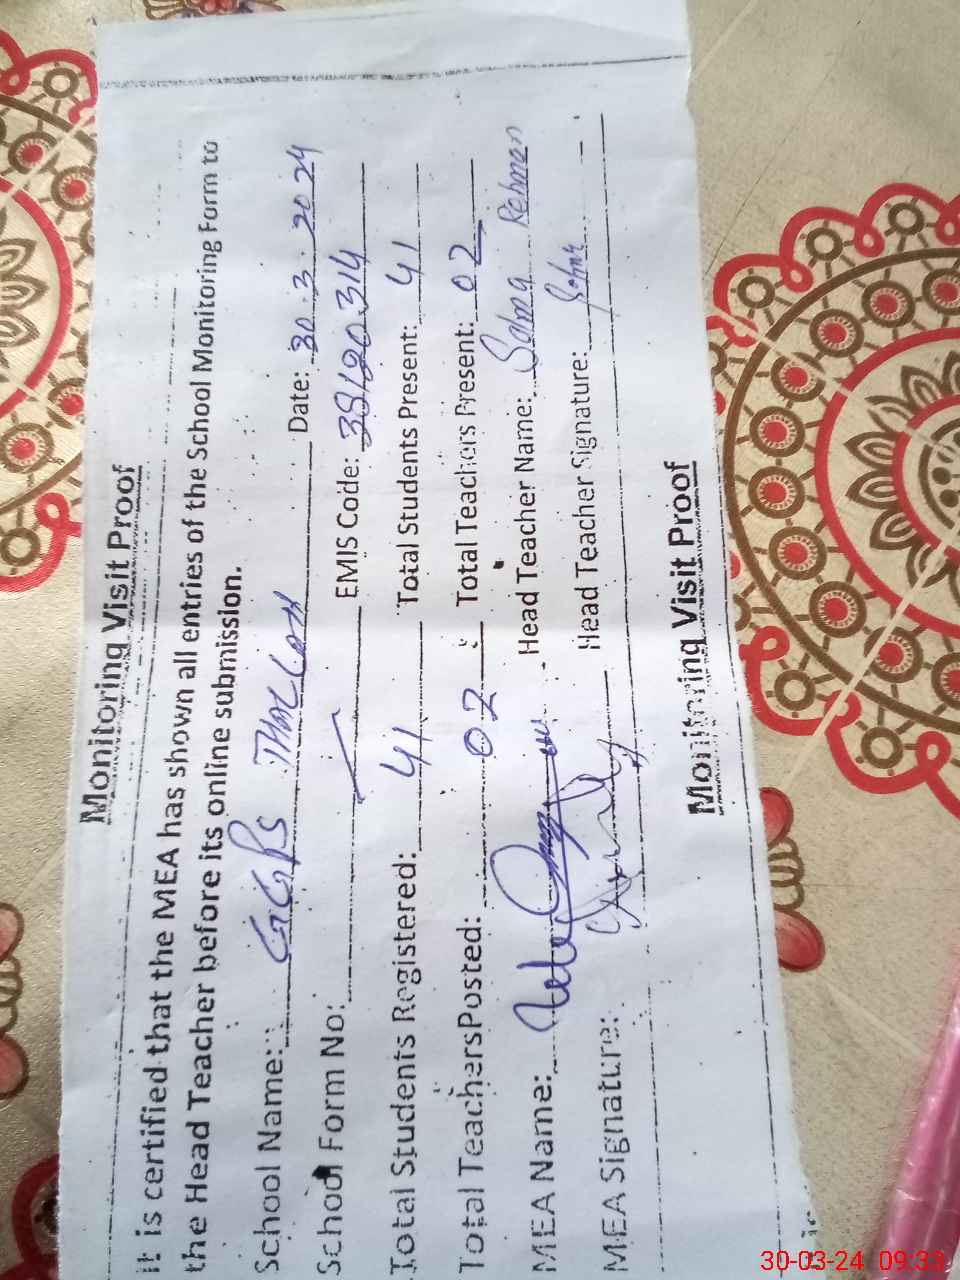 Monitoring Visit Proof
It is certified that the MEA has shown all entries of the School Monitoring Form to
the Head Teacher before its online submission.
School Name: GGPS Date: 30.3.2024
School Form No: EMIS Code: 38120314
Total Students Registered: 41 Total Students Present: 41
Total TeachersPosted: 02 Total Teachers Present: 02
MEA Name: Head Teacher Name: Salma Rehman
MEA Signature: Head Teacher Signature:
Monitoring Visit Proof
30-03-24 09:33